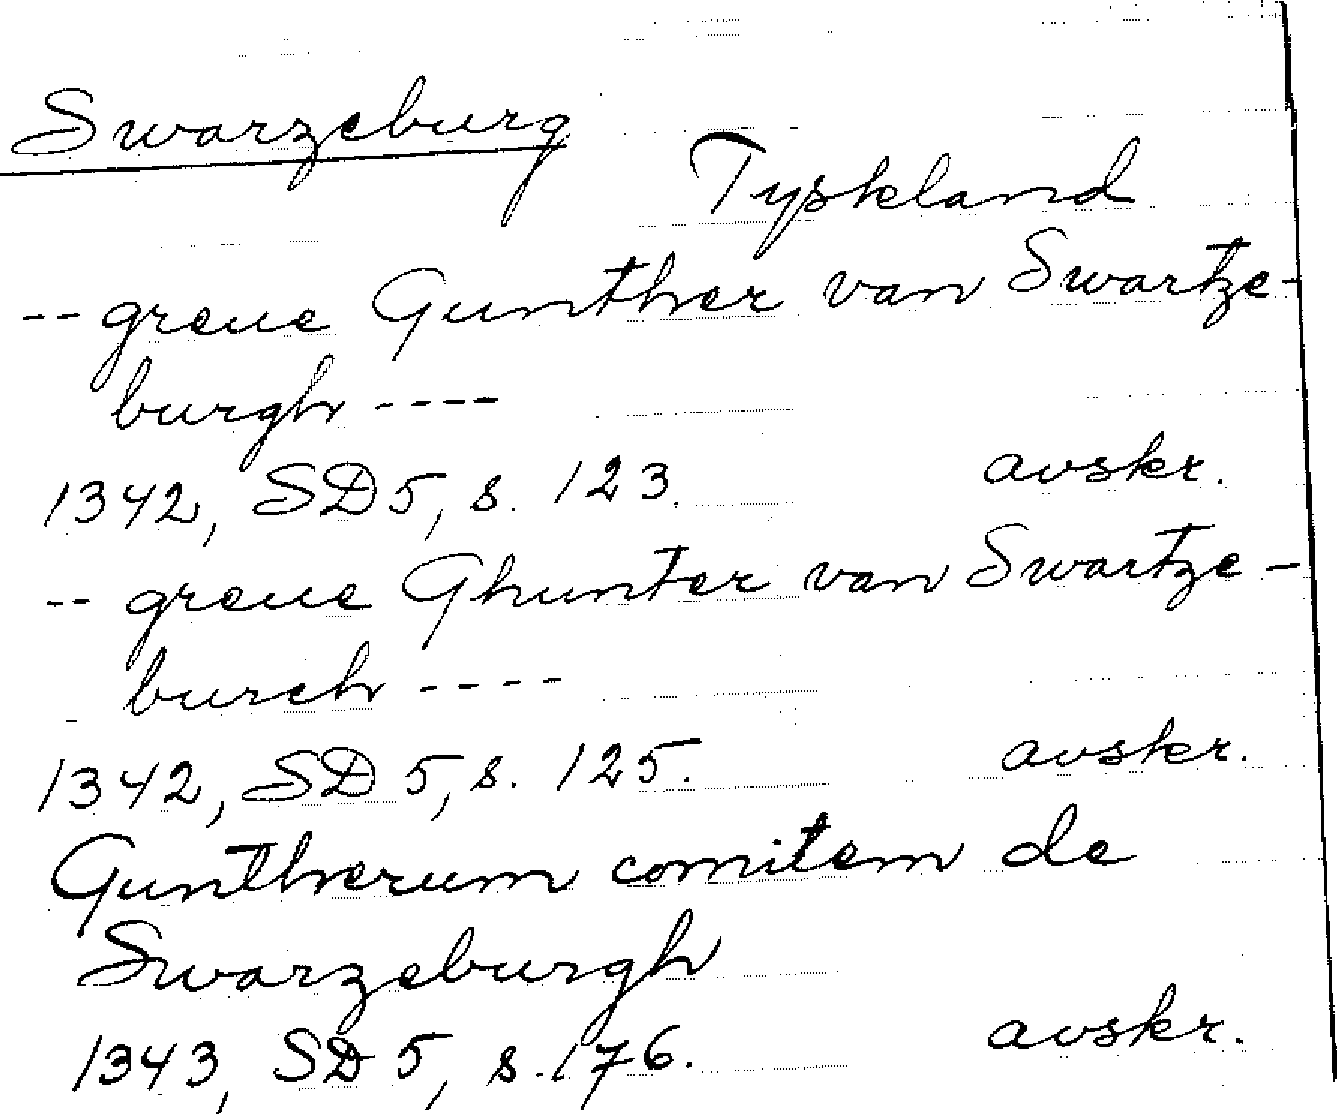 Swarzeburg
Tyskland
-- greue Gunther van Swartze-
burgh ----
1342, SD5, s. 123. avskr.
-- greue Ghunter van Swartze-
burch ----
1342, SD 5, s. 125. avskr.
Guntherum comitem de
Swarzeburgh
1343, SD 5, s. 176. avskr.